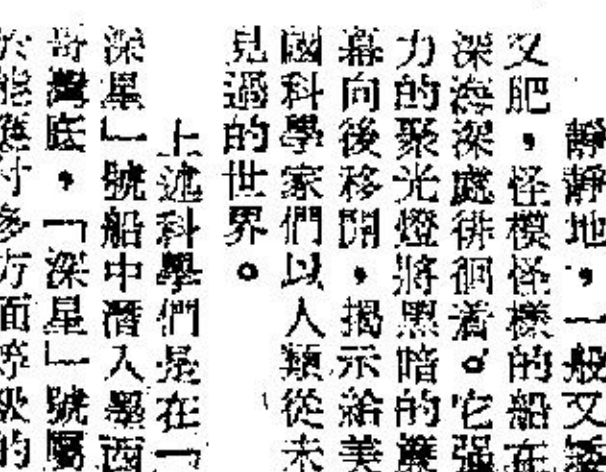 靜靜地，一般又矮
又肥，怪模怪樣的船在
深海深處徘徊着。它强
力的聚光燈將黑暗的簾
幕向後移開，揭示給美
國科學家們以人類從未
見過的世界。
上述科學們是在「
深星」號船中潛入墨西
哥灣底。「深星」號屬
於能應付多方面等級的